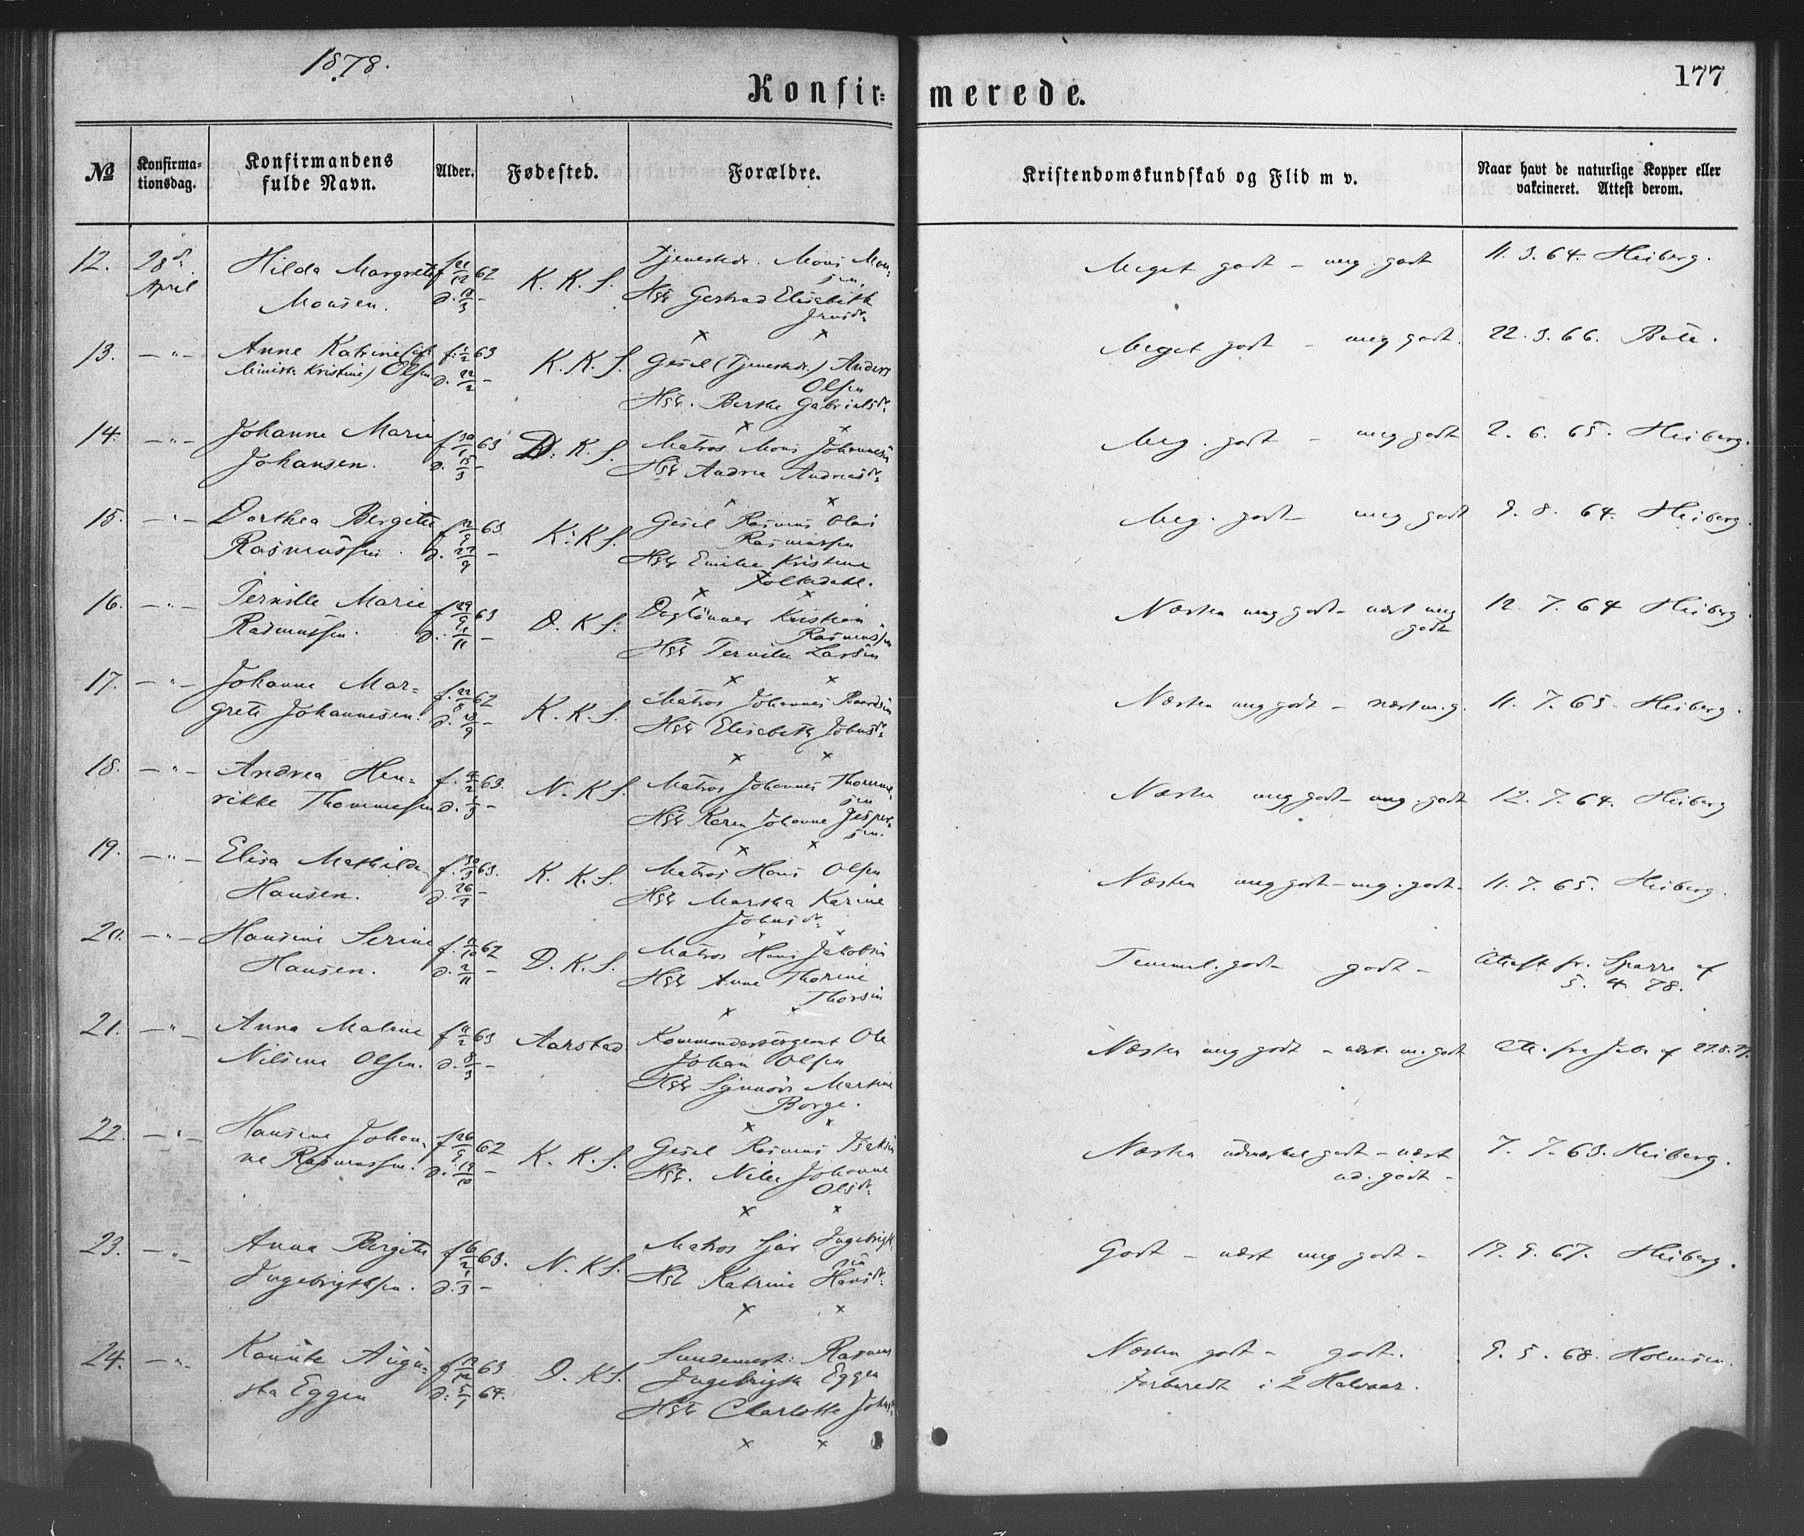 1878.
177
Konfir= merede.
№
Konfirma= tionsdag.
Konfirmandens fulde Navn.
Alder.
Fødested.
Forældre.
Kristendomskundskab og Flid m v.
Naar havt de naturlige Kopper eller vakcineret. Attest derom.
12. 28de April
Hilda Margrete
Monsen.
62
K. K. S.
Tjenestdr. Mons Mon=
sen
Hst Gertrud Elisabeth
Meget godt – meg. godt
11. 3. 64 Heiberg.
13. – " –
Anne Katrine
Kristine) Olsen
f. 1/2 63
d. 22/2 –
K. K. S.
Gesel (Tjenestdr.) Anders
Olsen
Hst. Berthe Gabrielsdr
Meget godt – meg godt.
22. 3. 66.
14. – " –
Johanne Marie
Johansen.
63
D. K. S.
Matros Mons Johannesen
Hst Andrea Andreasdr
Meg. godt – meg godt
2. 6. 65. Heiberg.
15. – " –
Dorthea Bergitte
Rasmussen.
63
K. K S.
Gesel Rasmus Olai
Rasmussen
Hst Emilie Kristine
Folkedahl.
Meg. godt – meg godt
9. 8. 64. Heiberg.
16. – " –
Pernille Marie
Rasmussen.
63
D. K S.
Daglönner Kristian
Rasmussen
Hst Pernille Larsen
Næsten meg godt – næst meg
godt
12. 7. 64 Heiberg.
17. – " –
Johanne Mar=
grete Johannesen.
62
K. K. S.
Matros Johannes Baardsen
Hst Elisabeth Johnsdr
Næsten meg godt – næst m. g.
11. 7. 65. Heiberg.
18. – " –
Andrea Hen=
rikke Thommesen
63.
N. K S.
Matros Johannes Thomme=
sen
Hst Karen Johanne Jesper=
sen.
Næsten meg godt – meg godt
12. 7. 64. Heiberg
19. – " –
Elisa Mathilde
Hansen.
63.
K. K. S.
Matros Hans Olsen
Hst Martha Karine
Johnsdr
Næsten meg godt – meg. godt.
11. 7. 65. Heiberg.
20. – " –
Hansine Serine
Hansen.
62
D. K. S.
Matros Hans Jakobsen
Hst Anne Thorine
Thorsen
Temmel. godt – godt –
Attest fr. Sparre af
5. 4. 78.
21. – " –
Anna Malene
Nilsine Olsen.
f. 11/2 63
d. 8/3 –
Aarstad.
Kommandersergent Ole
Johan Olsen
Hst Synnöve Martine
Borge.
Næsten meg godt – næst. m. godt
22. – " –
Hansine Johan=
ne Rasmussen.
f. 26/9 62
d. 19/10 –
K. K. S.
Gesel Rasmus
Hst. Nille Johanne
Olsdr
Næsten udmærket godt – næst
ud. godt –
7. 7. 63. Heiberg.
23. – " –
Anna Bergitte
Ingebrigtsen.
63.
N. K S.
Matros Sjur Ingebrigt
sen
Hst Katrine Hansdr
Godt – næst meg godt –
17. 9. 67. Heiberg.
24. – " –
Augu=
sta Eggen
f. 19/12 63
64.
D. K S.
Rasmus
Ingebrigt Eggen
Hst Charlotte Johns
Næsten godt – godt.
Forberedt i 2 Halvaar.
9. 5. 68. Holmsen.